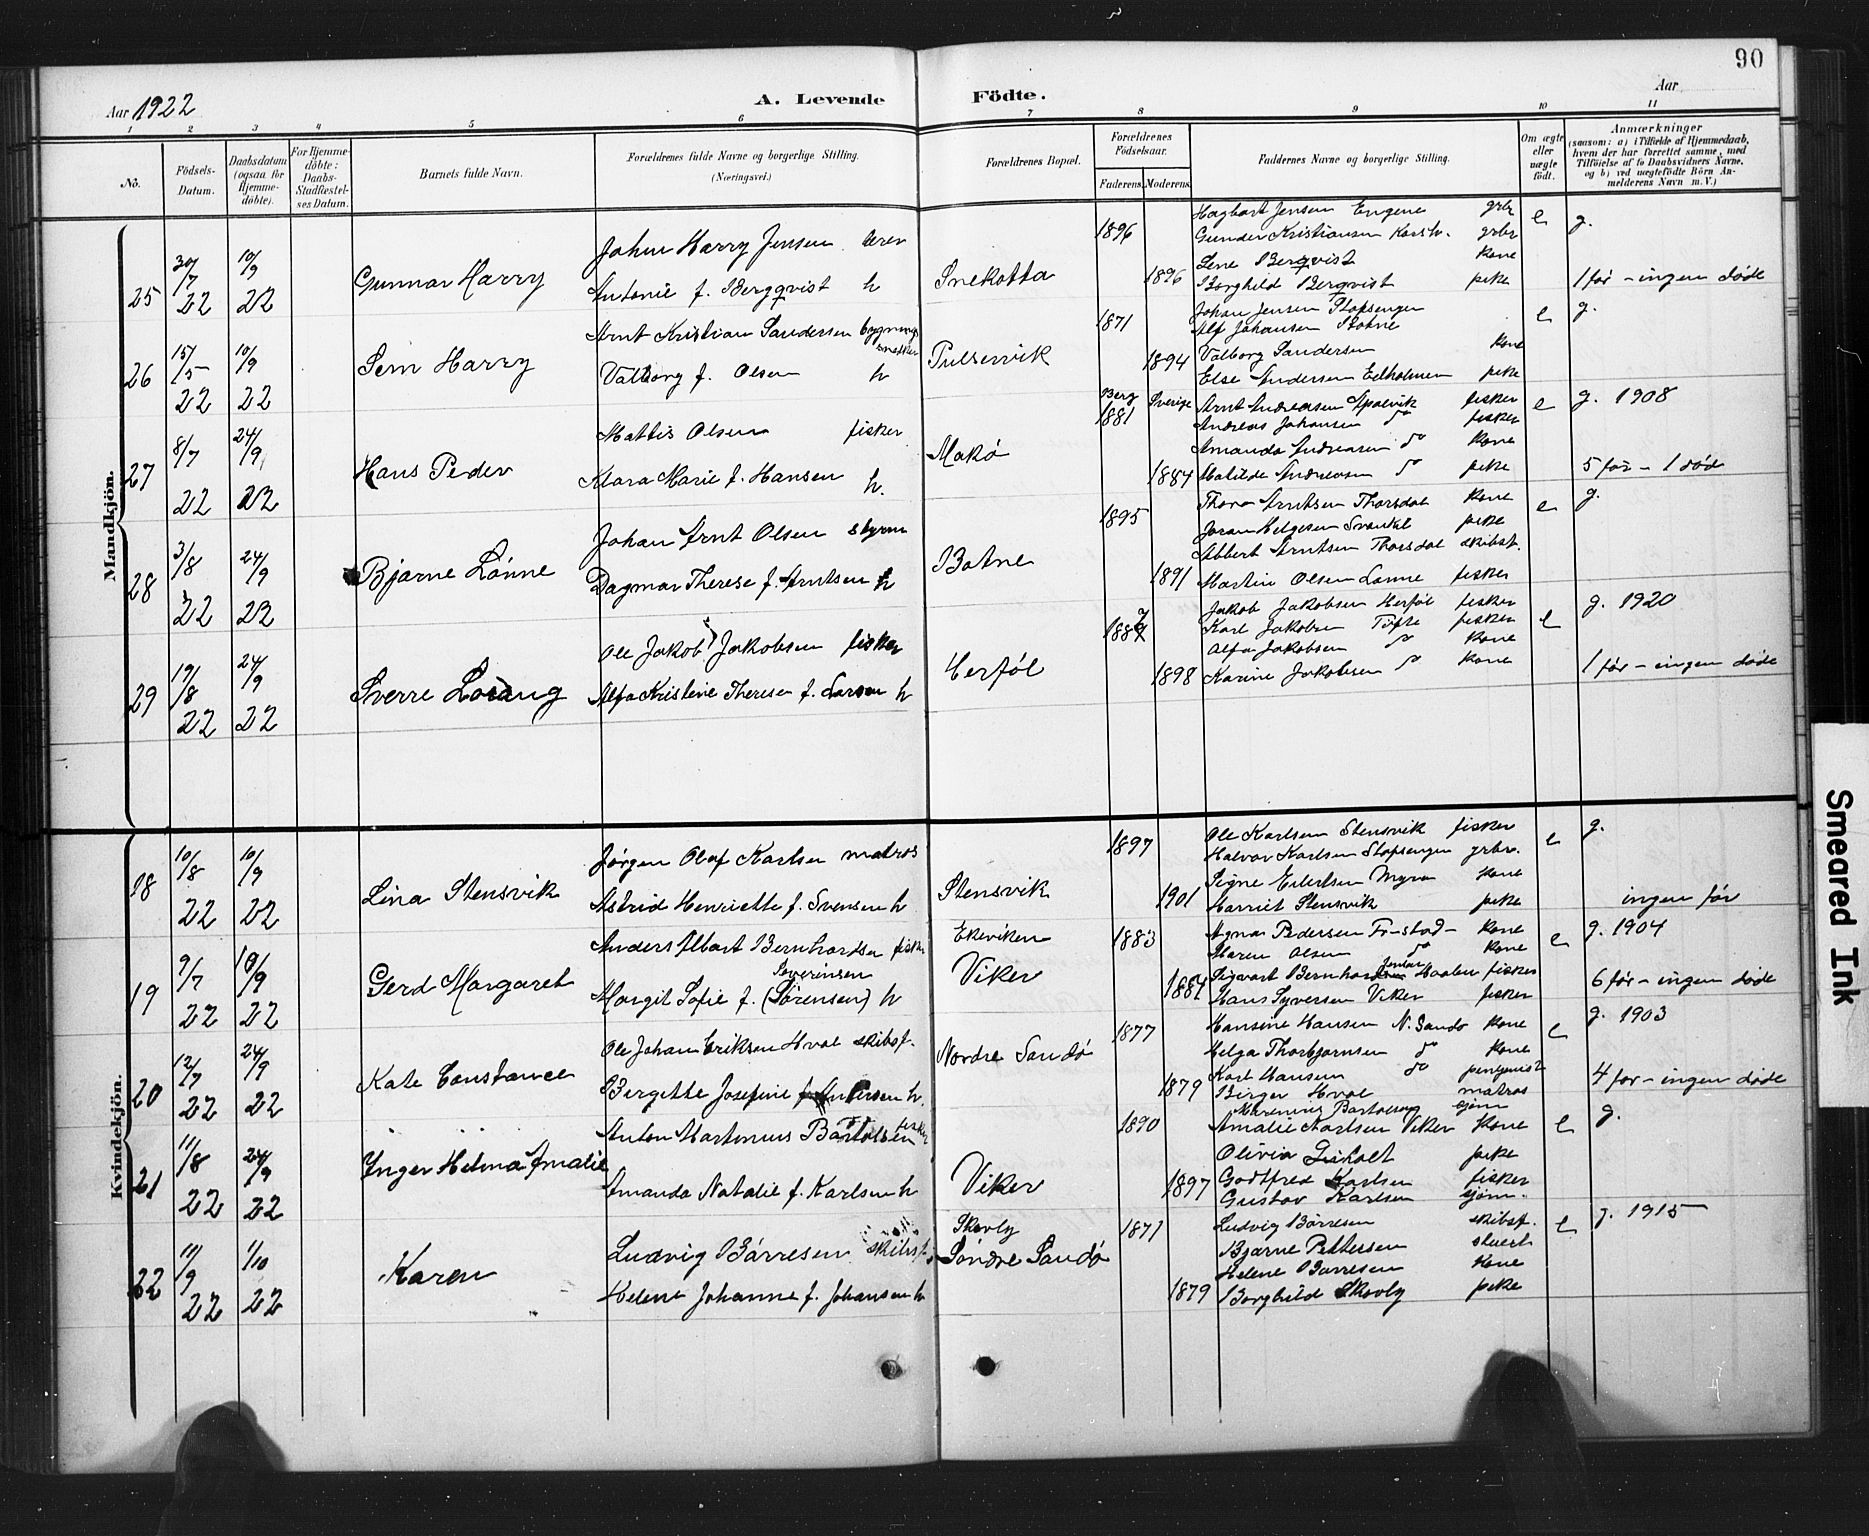 90
Aar 1922
A. Levende Födte.
Aar
1 2 3 4 5 6 7 8 9 10 11
No.
Födsels-Datum.
Daabsdatum (ogsaa for Hjemmedöbte).
For Hjemmedöbte: Daabs-Stadfæstelses Datum.
Barnets fulde Navn.
Forældrenes fulde Navne og borgerlige Stilling. (Næringsvei.)
Forældrenes Bopæl.
Forældrenes Födselsaar.
Faderens. Moderens.
Faddernes Navne og borgerlige Stilling.
Om ægte eller uægte födt.
Anmærkninger
(saasom: a) i Tilfælde af Hjemmedaab, hvem der har forrettet samme, med Tilföielse af to Daabsvidners Navne, og b) ved uægtefödte Börn Anmelderens Navn m. V.)
Mandkjön.
25 30/7 22 10/9 22 Gunnar Harry
Johan Harry Jensen
Antonie f. Bergqvist h
Snekotta
1896 1896
Hagbart Jensen Engene grbr
Gunder Kristiansen grbr
Lene Berqvist kone
Borghild Berqvist pike
e g.
1 før - ingen døde
26 15/5 22 10/9 22 Sem Harry
Arnt Kristian Sandersen bygningssnekker
Valborg f. Olsen h
Pulservik
1871 1894
Johan Jensen Stopsengen
Alf Johansen Botne
Valborg Sandersen kone
Else Andersen Edholmen pike
e g.
27 8/7 22 24/9 22 Hans Peder
Mattis Olsen fisker
Klara Marie f. Hansen h.
Makø
Berg 1881 Sverige 1884
Arnt Andreasen Apalvik fisker
Andreas Johansen do fisker
Amanda Andreasen do kone
Matilde Andreasen do pike
e g. 1908
5 før - 1 død
28 3/8 22 24/9 22 Bjarne Lønne
Johan Arnt Olsen styrm
Dagmar Therese f. Arntsen h
Botne
1895 1891
Thora Arntsen Thorsdal kone
Joran Helgesen pike
Albert Arntsen Thorsdal skibsf.
Martin Olsen Lønne fisker
e g.
29 19/8 22 24/9 22 Sverre Lorang
Ole Jakob Jakobsen fisker
Alfa Kristine Therese f. Larsen h
Herføl
1887 1898
Jakob Jakobsen Herføl fisker
Karl Jakobsen Tøfte fisker
Alfa Jakobsen do kone
Karine Jakobsen do kone
e g. 1920
1 før - ingen døde
Kvindekjön.
18 10/8 22 10/9 22 Lina Stensvik
Jørgen Olaf Karlsen matros
Astrid Henriette f. Svensen h
Stensvik
1897 1901
Ole Karlsen Stensvik fisker
Halvor Karlsen Stopsengen grbr.
Signe Eilertsen Myra kone
Harriet Stensvik pike
e g.
ingen før
19 9/7 22 10/9 22 Gerd Margaret
Anders Albert Bernhardsen fisker
Severinsen
Margit Sofie f. (Sørensen) h
Ekeviken
Viker
1883 1884
Agnar Pedersen kone
Maren Olsen do kone
Sigvart Bernhardsen fisker
Hans Syversen Viker fisker
e g. 1904
6 før - ingen døde
20 12/7 22 24/9 22 Kate Constance
Ole Johan Eriksen Hval skibsf.
Bergitte Josefine f. Andersen h.
Nordre Sandø
1877 1879
Hansine Hansen N. Sandø kone
Helga Thorbjørnsen do kone
Karl Hansen do
Birger Hval matros
e g. 1903
4 før - ingen døde
21 11/8 22 24/9 22 Inger Helma Amalie
Anton Martinius Bartolsen fisker
Amanda Natalie f. Karlsen h
Viker
1890 1897
Bartolsen sjøm
Amalie Karlsen Viker kone
Olivia pike
Godtfred Karlsen fisker
Gustav Karlsen sjøm.
e g.
22 11/9 22 1/10 22 Karen
Ludvig Børresen skibsf.
Helene Johanne f. Johansen h
Skovly
Søndre Sandø
1871 1879
Ludvig Børresen skibsf.
Bjarne Pettersen stuert
Helene Børresen kone
Borghild Skovly pike
e g. 1915
Smeared Ink